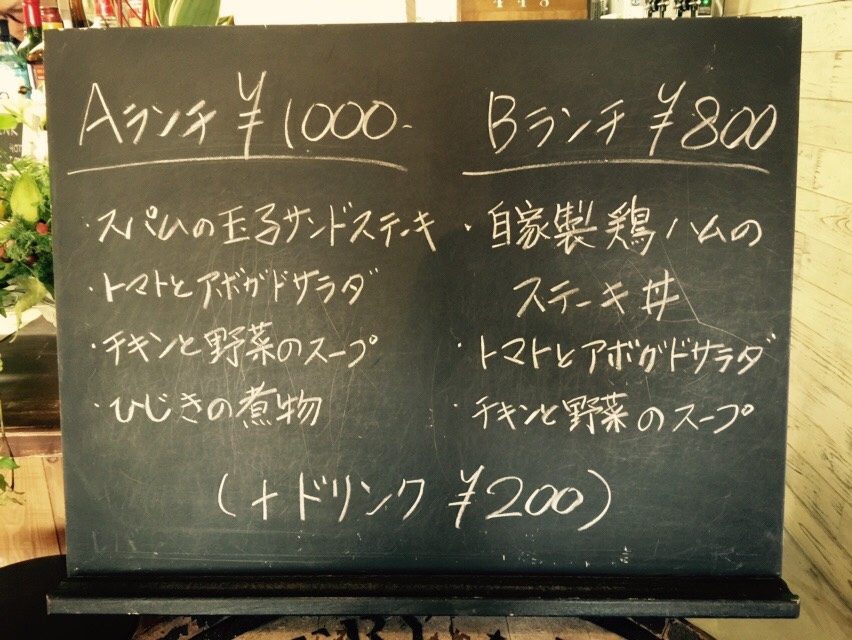 Aランチ ¥1000-
・スパムの玉子サンドステーキ
・トマトとアボガドサラダ
・チキンと野菜のスープ
・ひじきの煮物
Bランチ ¥800
・自家製鶏ハムの
ステーキ丼
・トマトとアボガドサラダ
・チキンと野菜のスープ
(+ドリンク ¥200)